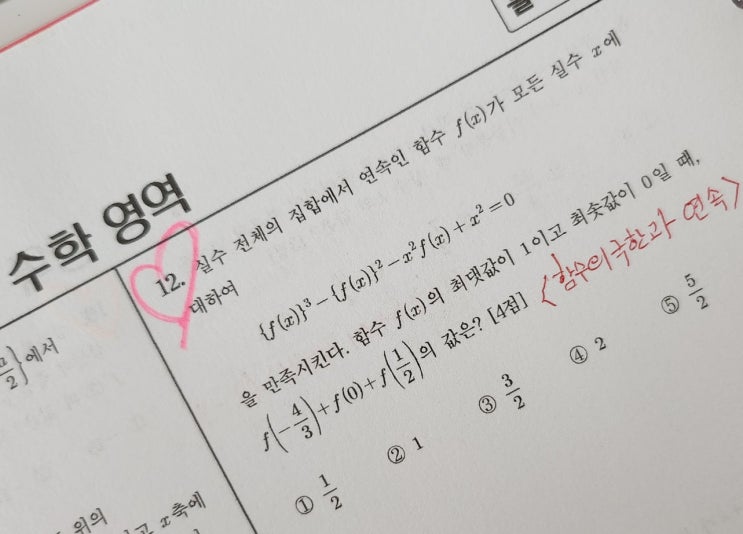 수학 영역
12. 실수 전체의 집합에서 연속인 함수 f(x)가 모든 실수 x에
대하여
{f(x)}³-{f(x)}²-x²f(x)+x²=0
을 만족시킨다. 함수 f(x)의 최댓값이 1이고 최솟값이 0일 때,
f(-4/3)+f(0)+f(1/2)의 값은? [4점]
<함수의 극한과 연속>
① 1/2 ② 1 ③ 3/2 ④ 2 ⑤ 5/2
2}에서
위의
고 x축에